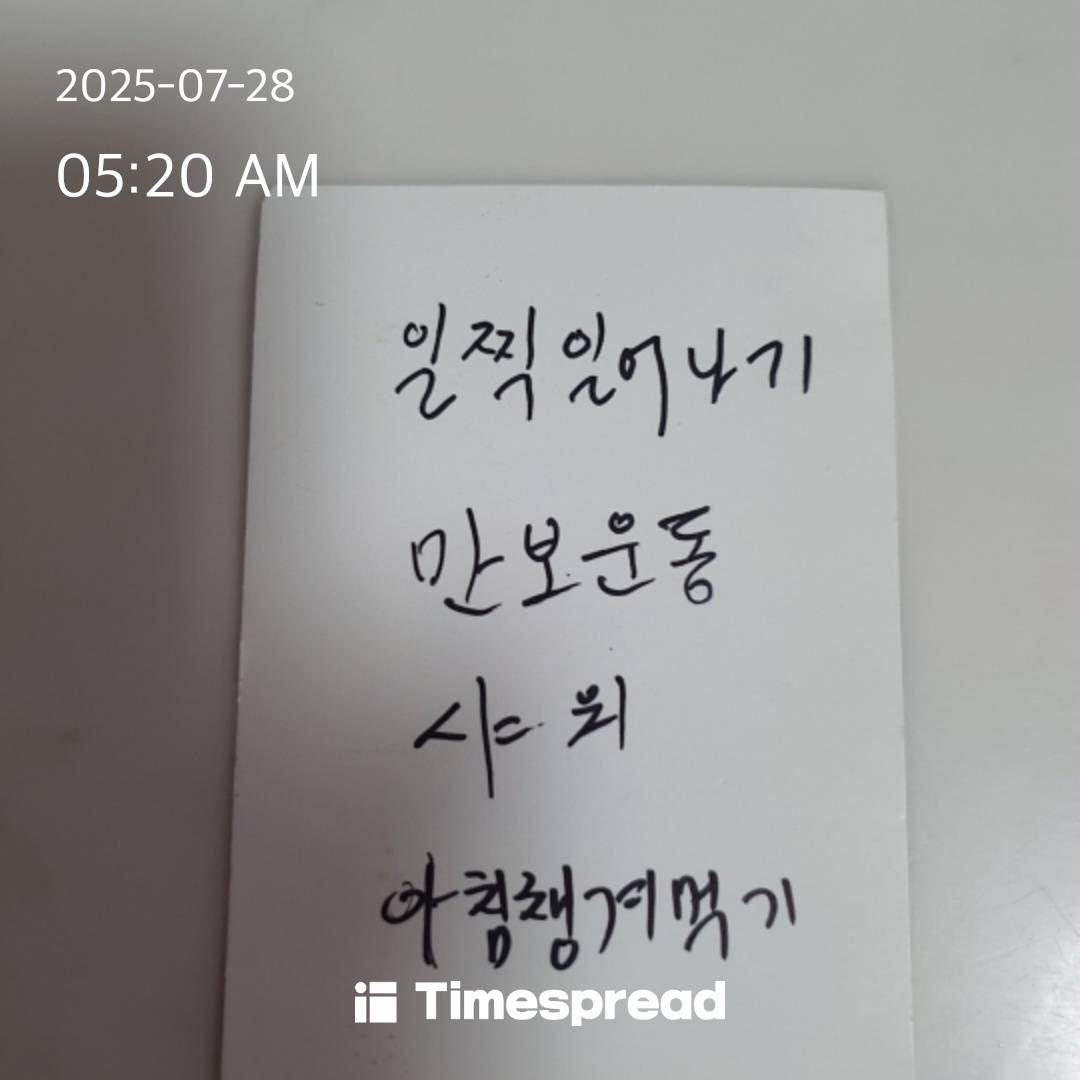 2025-07-28
05:20 AM
일찍일어나기
만보운동
샤워
아침챙겨먹기
Timespread